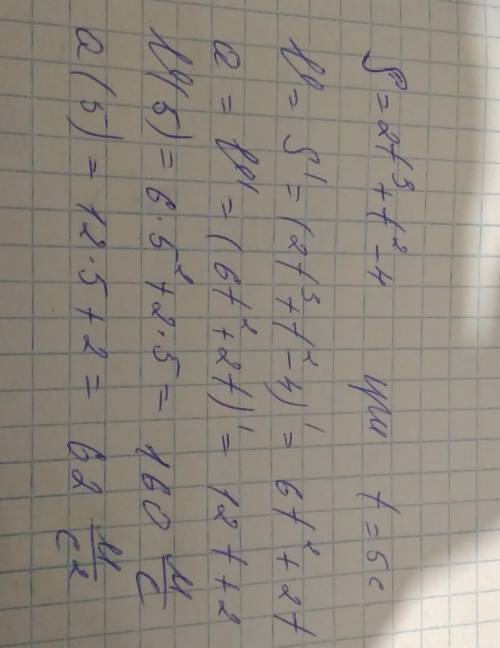 S = 2t³ + t² - 4 при t = 5c
V = S' = (2t³ + t² - 4)' = 6t² + 2t
a = V' = (6t² + 2t)' = 12t + 2
V(5) = 6·5² + 2·5 = 160 м/с
a(5) = 12·5 + 2 = 62 м/с²